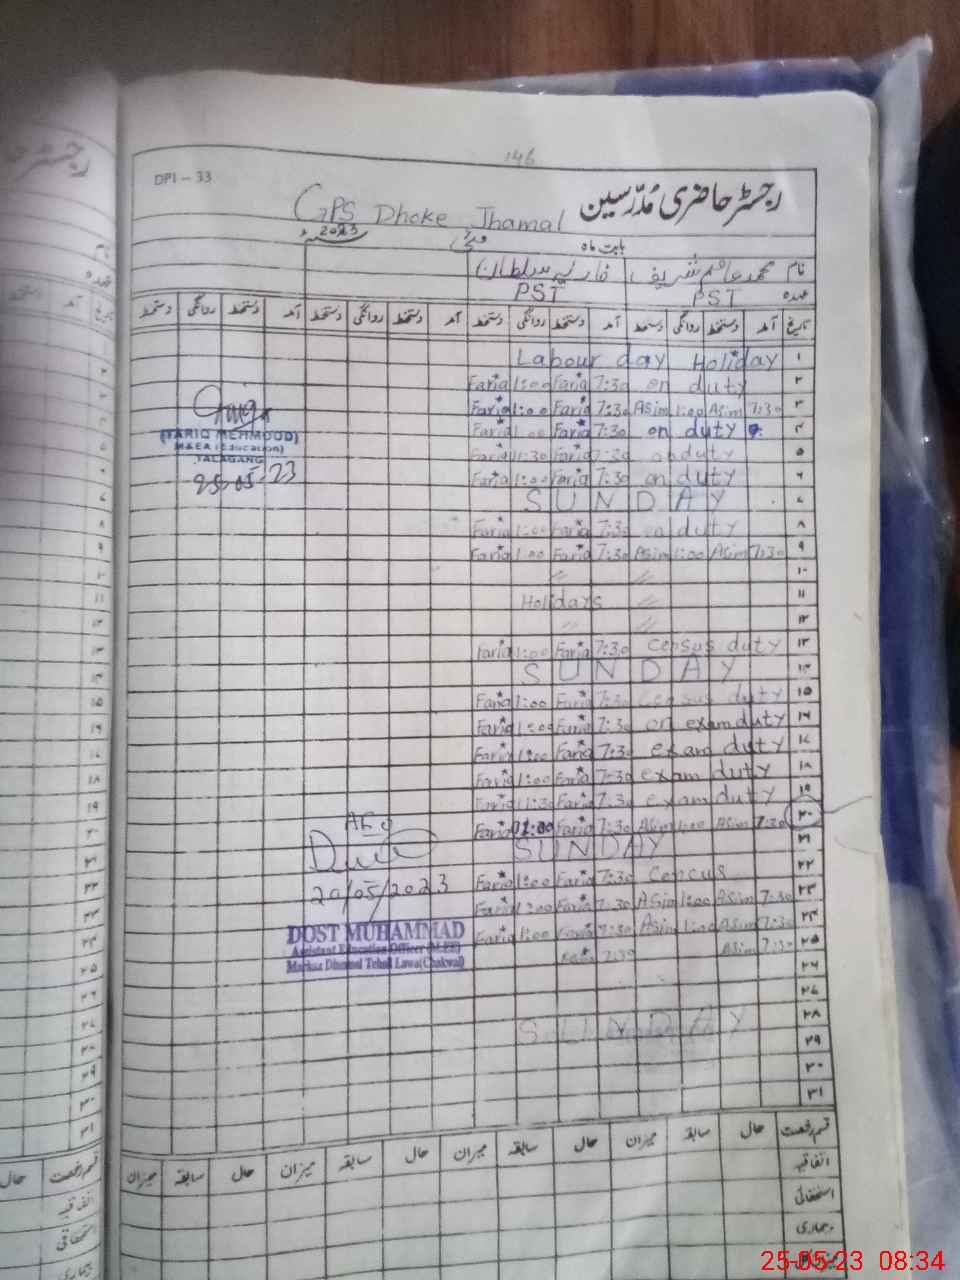 146
DPI – 33
رجسٹر حاضری مدرسین
GPS Dhoke Jhamal
بابت ماہ مئی 2023
نام محمد عاصم شریف
عہدہ PST PST
تاریخ آمد دستخط روانگی دستخط آمد دستخط روانگی دستخط آمد دستخط روانگی دستخط آمد دستخط روانگی دستخط
۱ Labour day Holiday
۲ Fariq 1:00 Fariq 7:30 on duty
۳ Fariq 1:00 Fariq 7:30 Asim 1:00 Asim 7:30
۴ Fariq 1:00 Fariq 7:30 on duty
۵ Fariq 11:30 Fariq 7:30 on duty
۶ Fariq 1:00 Fariq 7:30 on duty
۷ SUNDAY
۸ Fariq 1:00 Fariq 7:30 on duty
۹ Fariq 1:00 Fariq 7:30 Asim 1:00 Asim 7:30
۱۰ // //
۱۱ Holidays //
۱۲ // //
۱۳ Fariq 1:00 Fariq 7:30 Census duty
۱۴ SUNDAY
۱۵ Fariq 1:00 Fariq 7:30 Census duty
۱۶ Fariq 1:00 Fariq 7:30 on exam duty
۱۷ Fariq 1:00 Fariq 7:30 exam duty
۱۸ Fariq 1:00 Fariq 7:30 exam duty
۱۹ Fariq 11:30 Fariq 7:30 exam duty
۲۰ Fariq Fariq 7:30 Asim 1:00 Asim 7:30
۲۱ SUNDAY
۲۲ Fariq 1:00 Fariq 7:30 Cencus
۲۳ Fariq 1:00 Fariq 7:30 Asim 1:00 Asim 7:30
۲۴ Fariq 1:00 Fariq 7:30 Asim 1:00 Asim 7:30
۲۵ 7:30 Asim 7:30
۲۶
۲۷
۲۸ SUNDAY
۲۹
۳۰
۳۱
(TARIQ MEHMOOD)
M&EA (Education)
TALAGANG
25-05-23
20/05/2023
DOST MUHAMMAD
Assistant Education Officer (M-EE)
Markaz Dhurnal Tehsil Lawa (Chakwal)
قسم رخصت حال سابقہ میزان حال سابقہ میزان حال سابقہ میزان حال سابقہ میزان
اتفاقیہ
استحقاقی
بیماری
میزان
25-05-23 08:34